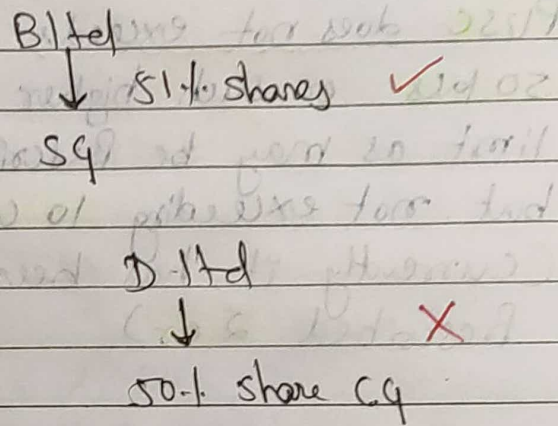 B.ltd
51.1. shares
SG
D.ltd
50.1. share C.G